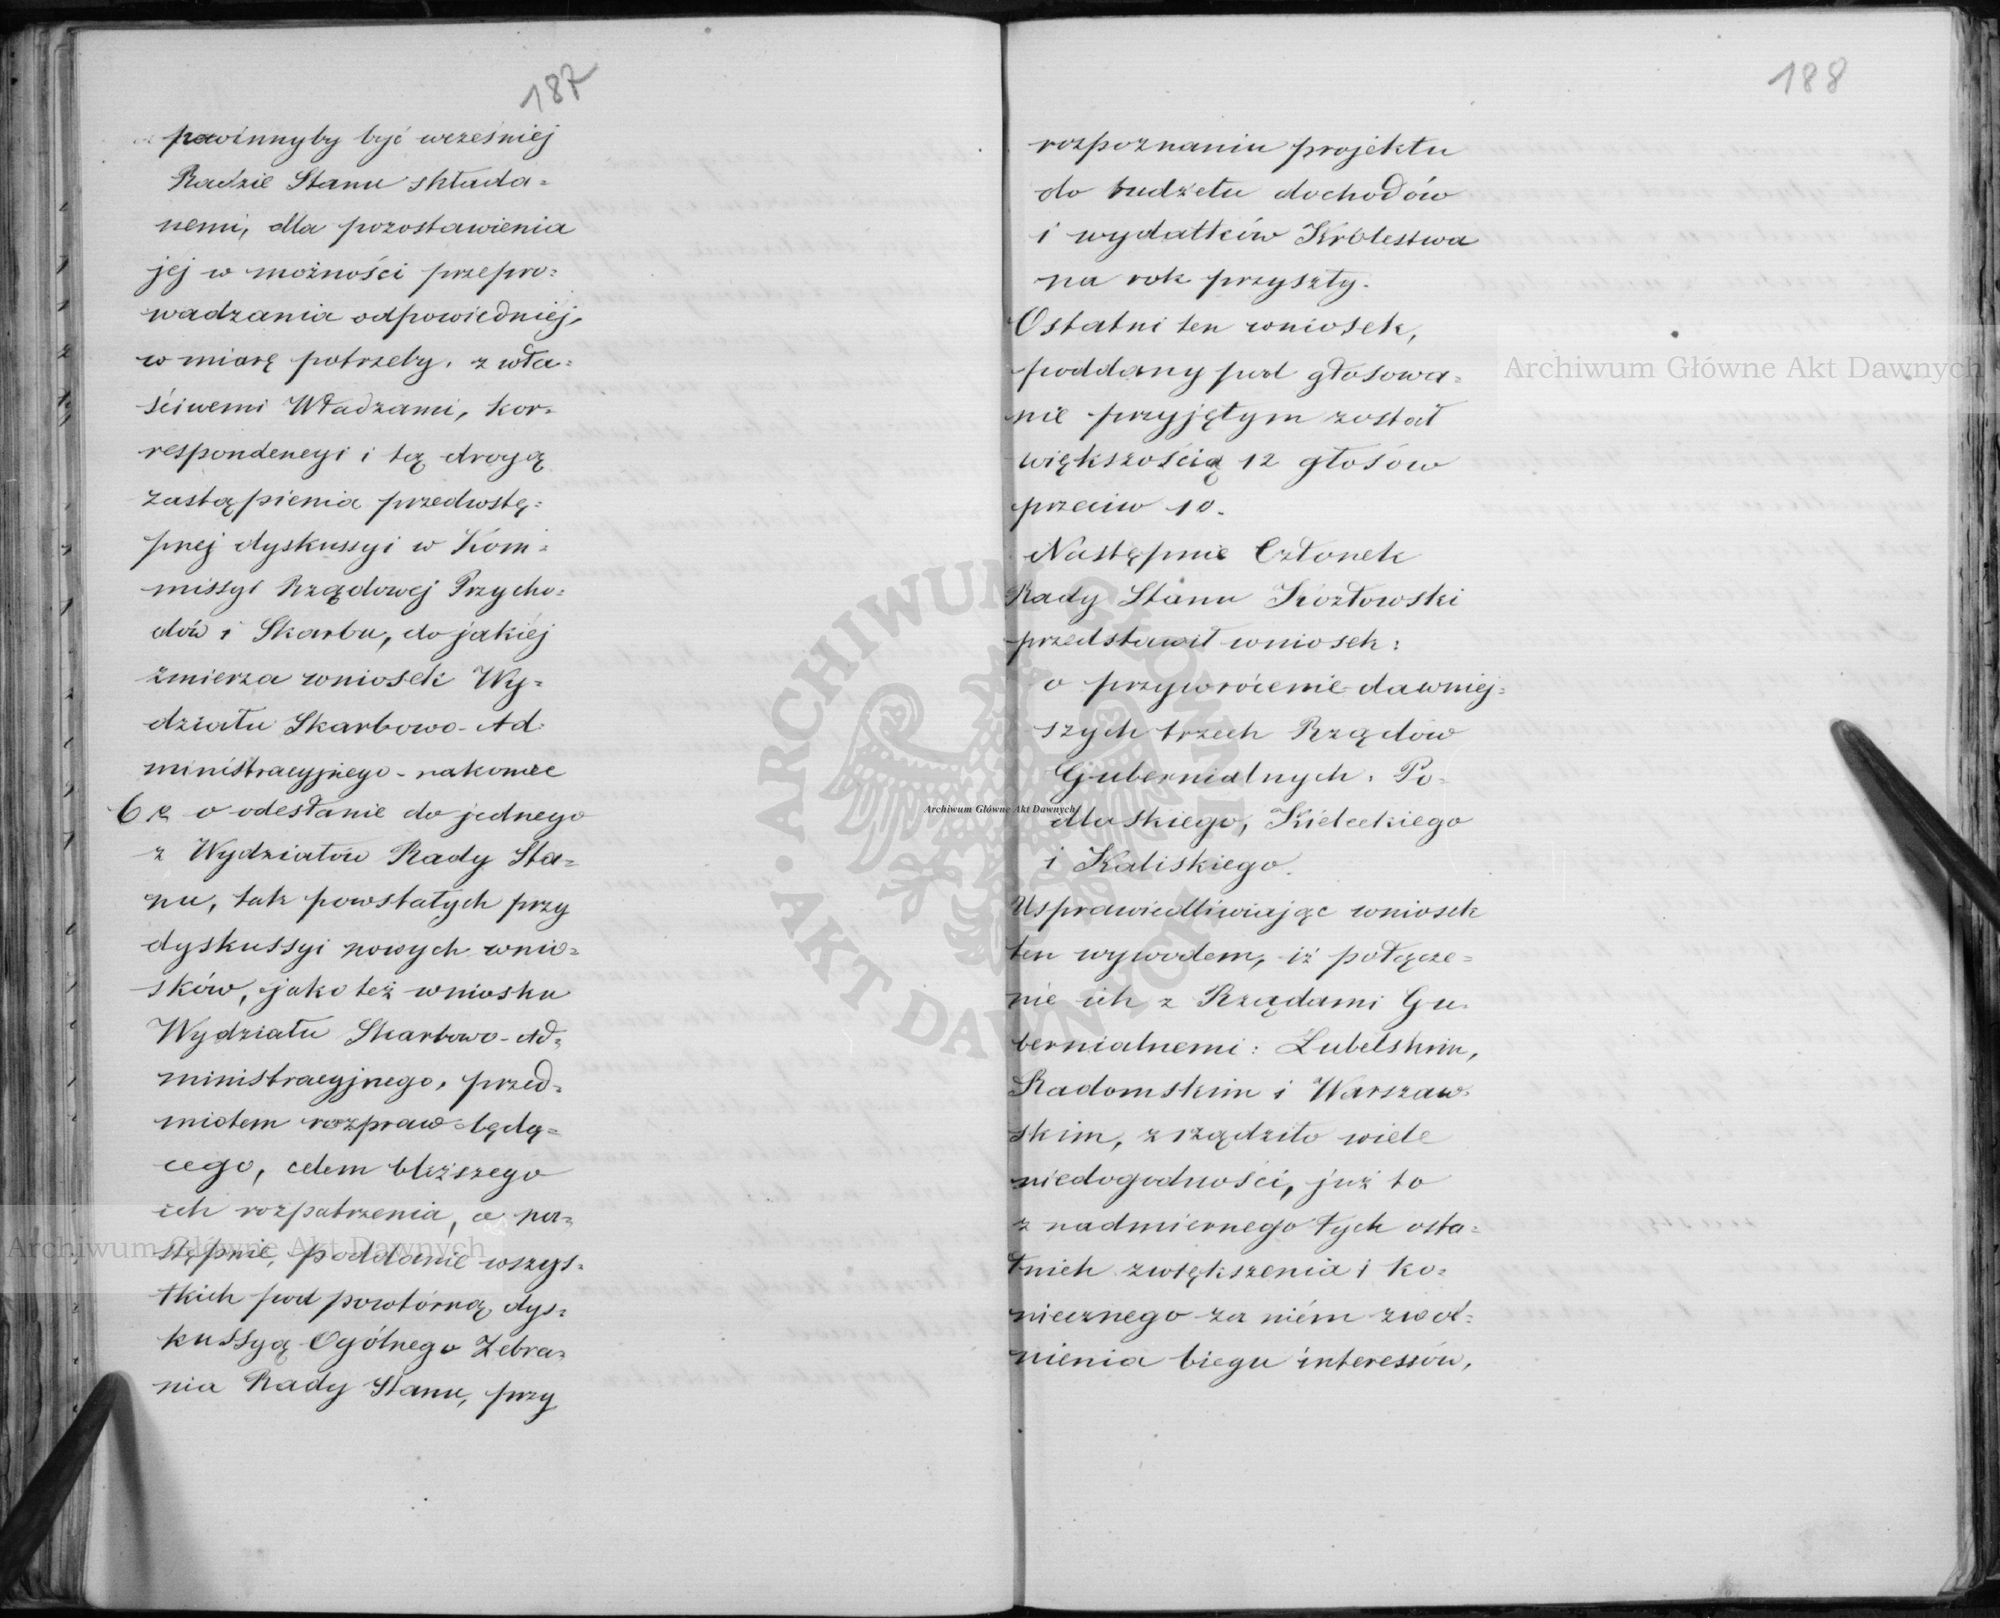 187
powinnyby być wcześniej
Radzie Stanu składa=
nemi, dla pozostawienia
jej w możności przepro=
wadzania odpowiedniej,
w miarę potrzeby, z wła=
ściwemi Władzami, kor=
respondencyi i tą drogą
zastąpienia przedwstę=
pnej dyskussyi w Kom=
missyi Rządowej Przycho=
dów i Skarbu, do jakiej
zmierza wniosek Wy=
działu Skarbowo-Ad=
ministracyjnego - nakoniec
6 e o odesłanie do jednego
z Wydziałów Rady Sta=
nu, tak powstałych przy
dyskussyi nowych wnio=
sków, jako też wniosku
Wydziału Skarbowo-Ad=
ministracyjnego, przed=
miotem rozpraw będą=
cego, celem bliższego
ich rozpatrzenia, a na=
stępnie, poddanie wszys=
tkich pod powtórną dys=
kussyą Ogólnego Zebra=
nia Rady Stanu, przy
188
rozpoznaniu projektu
do budżetu dochodów
i wydatków Królestwa
na rok przyszły.
Ostatni ten wniosek,
poddany pod głosowa=
nie przyjętym został
większością 12 głosów
przeciw 10.
Następnie Członek
Rady Stanu Kozłowski
przedstawił wniosek:
o przywrócenie dawniej=
szych trzech Rządów
Gubernialnych, Po=
dlaskiego, Kieleckiego
i Kaliskiego.
Usprawiedliwiając wniosek
ten wywodem, iż połącze=
nie ich z Rządami Gu=
bernialnemi: Lubelskim,
Radomskim i Warszaw=
skim, zrządziło wiele
niedogodności, już to
z nadmiernego tych osta=
tnich zwiększenia i ko=
niecznego za niém zwol=
nienia biegu interessów,
Archiwum Główne Akt Dawnych
Archiwum Główne Akt Dawnych
Archiwum Główne Akt Dawnych
ARCHIWUM GŁÓWNE AKT DAWNYCH